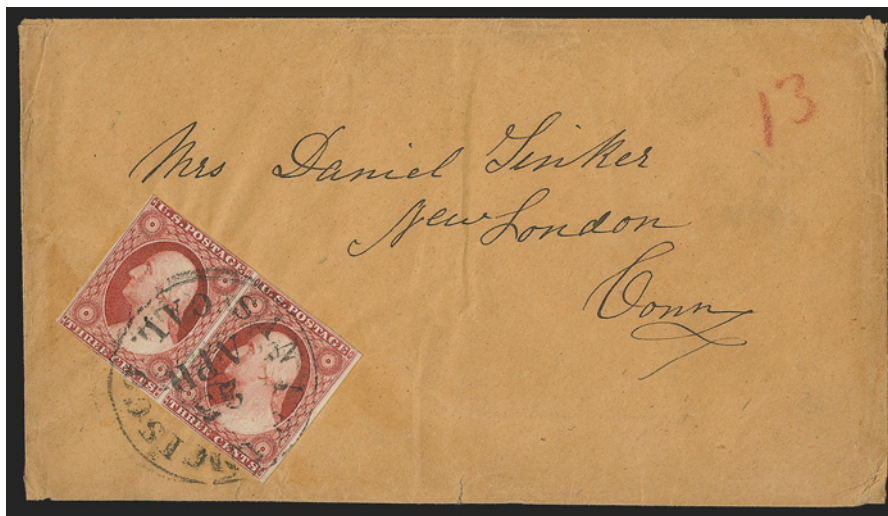 13
Mrs Daniel Tinker
New London
Conn
U.S. POSTAGE
THREE CENTS
U.S. POSTAGE
THREE CENTS
APR
CAL.